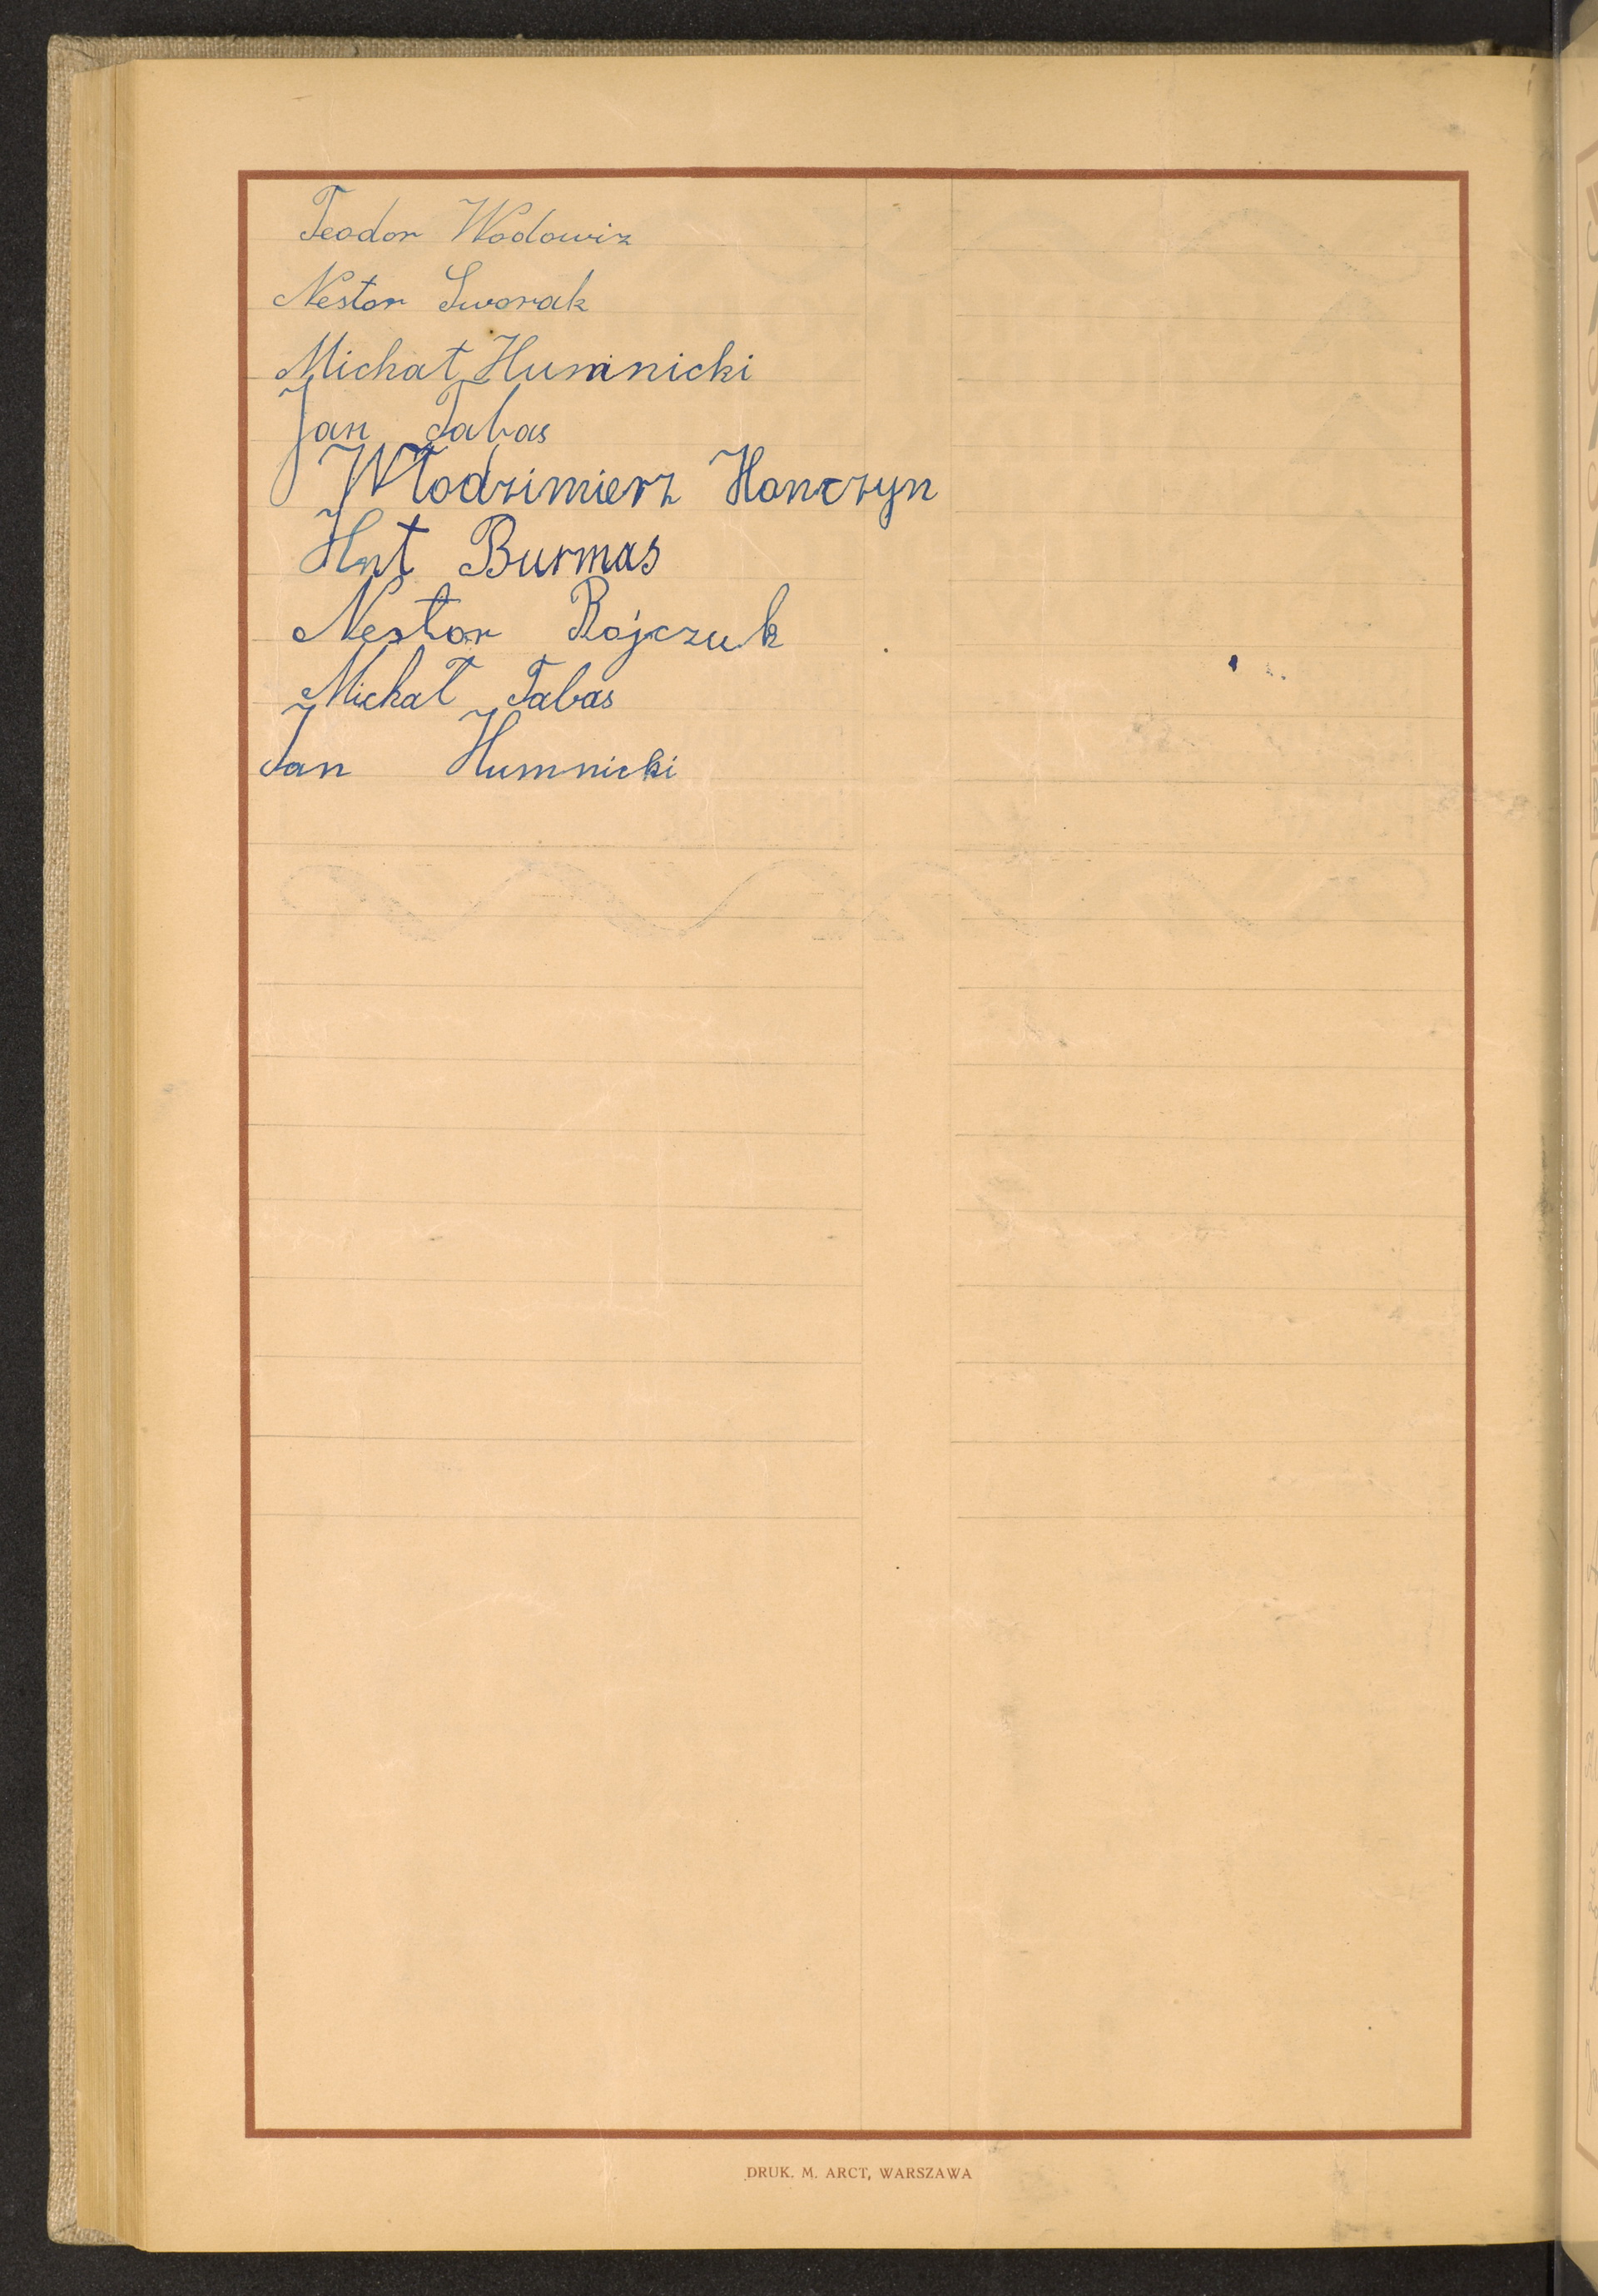 Teodor Wodowiz
Nestor Sworak
Michał Humnicki
Jan Tabas
Włodzimierz Honczyn
Hnt Burmas
Nestor Rojczuk
Michał Tabas
Jan Humnicki
DRUK. M. ARCT, WARSZAWA